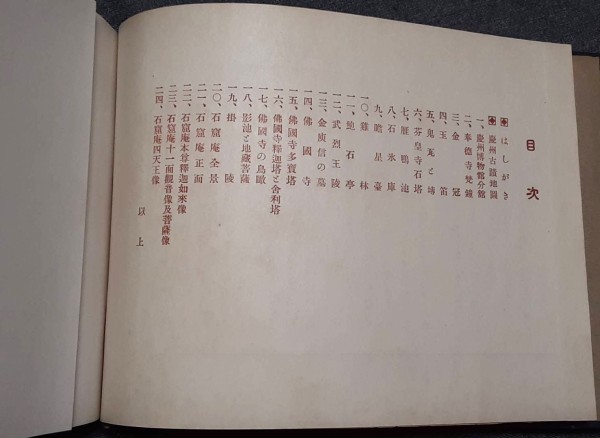 目次
はしがき
慶州古蹟地圖
一、慶州博物館分館
二、奉德寺梵鐘
三、金冠
四、玉笛
五、鬼瓦と塼
六、芬皇寺石塔
七、雁鴨池
八、石氷庫
九、瞻星臺
一〇、雞林
一一、鮑石亭
一二、武烈王陵
一三、金庾信の墓
一四、佛國寺
一五、佛國寺多寶塔
一六、佛國寺釋迦塔と舍利塔
一七、佛國寺の鳥瞰
一八、影池と地藏菩薩
一九、掛陵
二〇、石窟庵全景
二一、石窟庵正面
二二、石窟庵本尊釋迦如來像
二三、石窟庵十一面觀音像及菩薩像
二四、石窟庵四天王像
以上